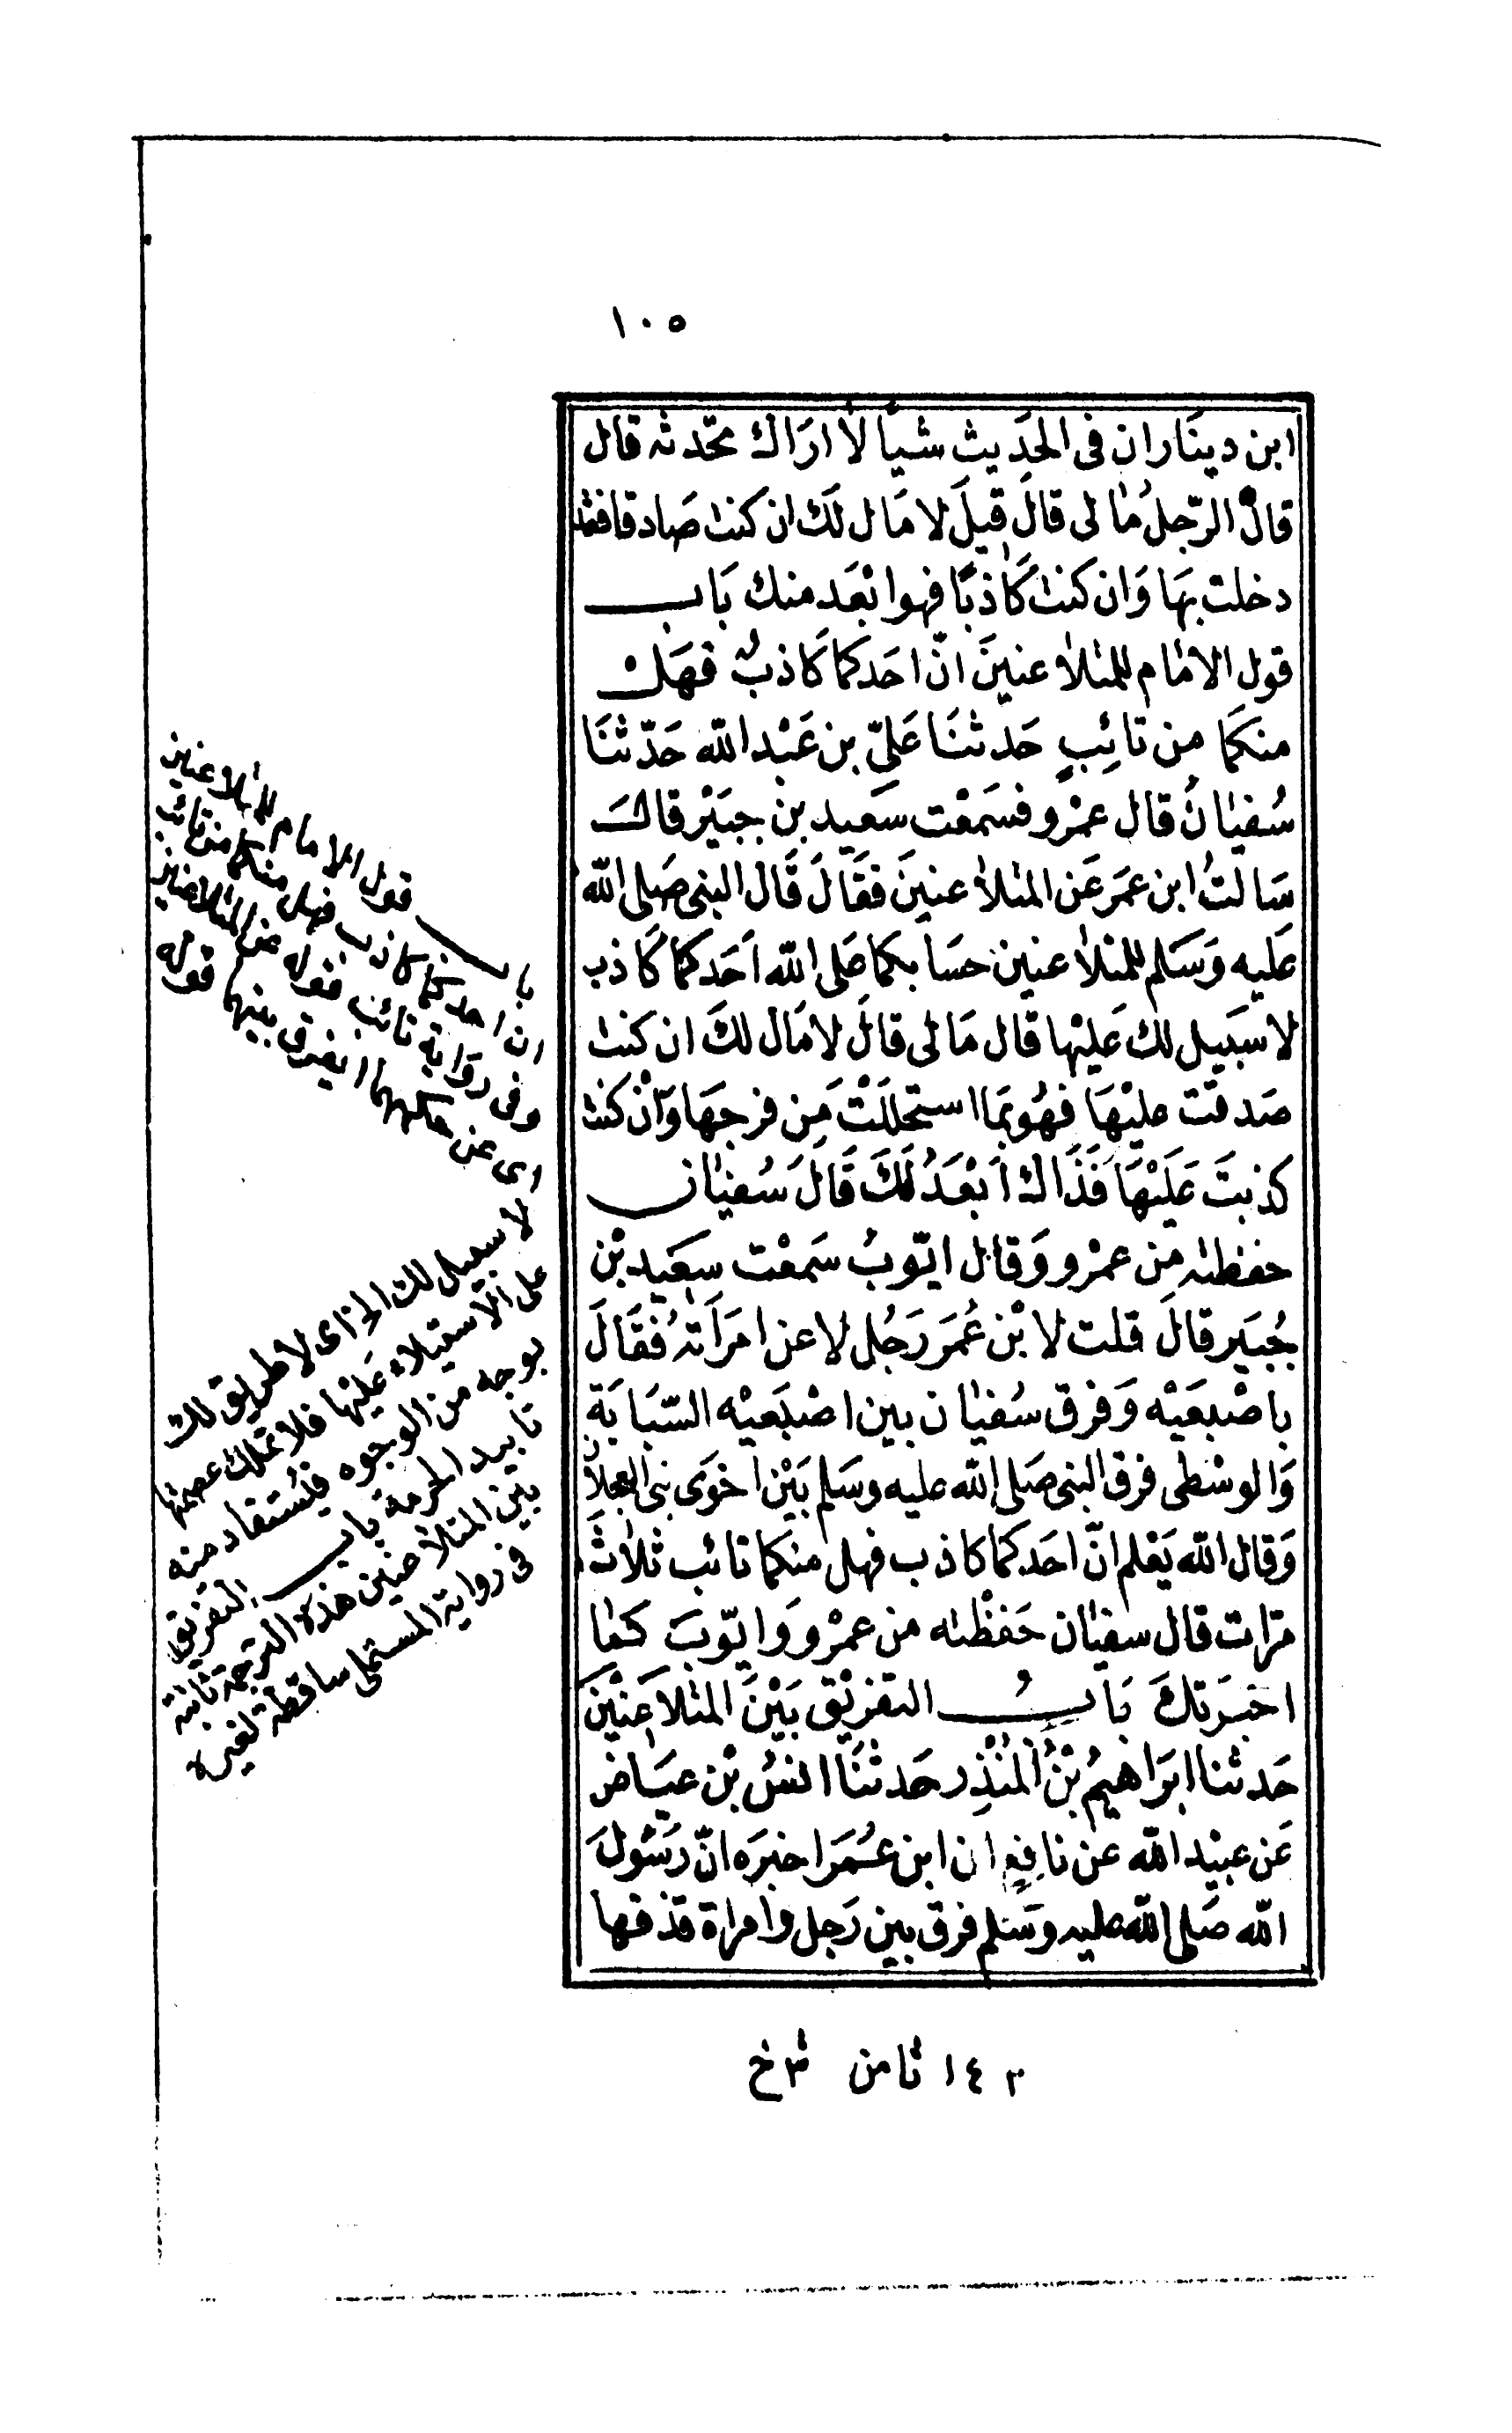 ١٠٥
ابن دينَاران فى الحَدِيث شيًا لا ارَاك تحّدثه قال
قال الرّجلُ مَا لى قالَ قيلَ لا مَال لَك ان كنت صَادقا فقد
دخلت بهَا وَان كنت كَاذبًا فهو ابْعَد منك بَاب
قول الامَام للمتلاعنينَ انّ احَدكما كَاذبٌ فهَل
منكمَا من تائِبٍ حَدثنَا عَلىّ بن عَبْد الله حَدّثنَا
سُفيَانُ قال عمْرو سَمعْت سَعيد بن جبَيْر قالَ
سَالتُ ابن عمَر عَن المتلاعنينَ فقَالَ قَال النبى صَلى الله
عَليه وَسَلم للمتلاعنين حسَابكما عَلى الله اَحَدكما كَاذب
لا سَبيل لك عَليْها قال مَا لى قالَ لا مَال لكَ ان كنت
صَدقت عليْهَا فهُو بمَا استحللَتْ مَن فرجهَا وَاْن كنت
كذبتَ عَلَيْهَا فَذَاك اَبْعَدُ لَكَ قَالَ سُفيَان
حفظته من عمْرو وَقال ايّوبُ سَمعْت سعَيد بْن
جُبَير قالَ قلت لابْن عُمَر رَجُل لاعن امرَاَتهُ فقَالَ
باصْبعَيْه وَفرق سُفيَان بين اصْبَعيْه السّبَابَةِ
وَالوسْطى فرق النبى صَلى الله عليه وسَلم بَيْن اخوَى بنى العجلان
وَقال الله يَعْلم انّ احَدكما كاذب فهل منكما تائب ثلاثَ
مَرات قال سفيَان حَفظْته من عمْرو وَايّوبَ كمَا
اخبَرتكَ بَابُ التفريْق بَيْنَ المتلاعنيْنَ
حَدثنا ابرَاهيمُ بْنُ الْمُنْذِر حَدثنَا انسُ بْن عيَاض
عَن عبيْد الله عن نافِعٍ ان ابن عُمَر اخبرَه انّ رَسُولَ
الله صَلى الله عليه وسَلم فرق بين رَجل وامراة قذفها
باب قول الامام للمتلاعنين
ان احدكما كاذب فهل منكما من تائب
وفى روَاية تائب قوله عن المتلاعنين
اى عن حكمهما ايفرق بينهما قوله
لا سبيل لك الخ اى لا طريق لك
على الاستيلاء عَليْها فلا تملك عصمتها
بوجه من الوجوه فيُستفاد منه
تابيد الحرمة باب التفريق
بين المتلاعنين هذه الترجمة ثابتة
فى رواية المستملى ساقطة لغيره
١٤٣ ثامن خ